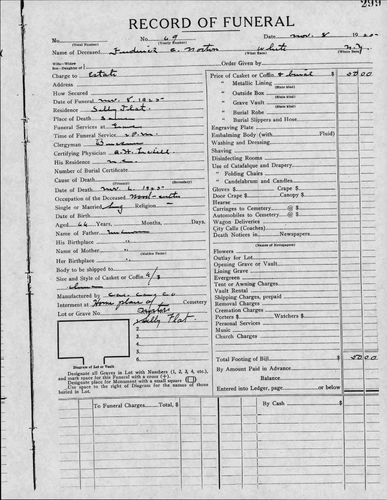 299
RECORD OF FUNERAL
No. No. 69 Date Nov. 8 1925
(Total Number) (Yearly Number)
Name of Deceased Frederick A. Norton White N.Y.
(What Race) (Where Born)
Wife—Widow
Son—Daughter of Order Given by
Charge to Estate
Address
How Secured
Date of Funeral Nov. 8, 1925
Residence Sally Flat
Place of Death
Funeral Services at
Time of Funeral Service P.M.
Clergyman
Certifying Physician
His Residence
Number of Burial Certificate
Cause of Death
(Primary) (Secondary)
Date of Death Nov. 6, 1925
Occupation of the Deceased
Single or Married Sing Religion
Date of Birth
Aged 66 Years, Months, Days.
Name of Father
His Birthplace "
Name of Mother "
(Maiden Name)
Her Birthplace "
Body to be shipped to
Size and Style of Casket or Coffin 6/3
Manufactured by
Interment at Home place of Cemetery
Lot or Grave No. Sally Flat
1.
2.
3.
4.
5.
6.
Diagram of Lot or Vault
Designate all Graves in Lot with Numbers (1, 2, 3, 4, etc.),
and mark space for this Funeral with a cross (+).
Designate place for Monument with a small square
Use space to the right of Diagram for the names of those
buried in Lot.
Price of Casket or Coffin & burial $ 50 00
" Metallic Lining
(State Kind)
" Outside Box
(State Kind)
" Grave Vault
(State Kind)
" Burial Robe
(State Kind)
" Burial Slippers and Hose
Engraving Plate
Embalming Body (with Fluid)
Washing and Dressing
Shaving
Disinfecting Rooms
Use of Catafalque and Drapery
" Folding Chairs
" Candelabrum and Candles
Gloves $ Crape $
Door Crape $ Canopy $
Hearse
Carriages to Cemetery @ $
Automobiles to Cemetery @ $
Wagon Deliveries
City Calls (Coaches)
Death Notices in Newspapers
(Names of Newspapers)
Flowers
Outlay for Lot
Opening Grave or Vault
Lining Grave
Evergreen
Tent or Awning Charges
Vault Rental
Shipping Charges, prepaid
Removal Charges
Cremation Charges
Porters $ Watchers $
Personal Services
Music
Church Charges
Total Footing of Bill $ 50 00
By Amount Paid in Advance
Balance
Entered into Ledger, page or below
To Funeral Charges Total, $
By Cash $